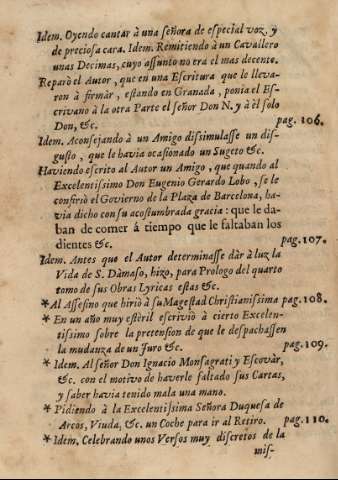 Idem. Oyendo cantar à una señora de especial voz, y
de preciosa cara. Idem. Remitiendo à un Cavallero
unas Decimas, cuyo assunto no era el mas decente.
Reparò el Autor, que en una Escritura que le lleva-
ron à firmàr, estando en Granada, ponia el Es-
crivano à la otra Parte el señor Don N. y à èl solo
Don, &c. pag. 106.
Idem. Aconsejando à un Amigo dissimulasse un dis-
gusto, que le havia ocasionado un Sugeto &c.
Haviendo escrito al Autor un Amigo, que quando al
Excelentissimo Don Eugenio Gerardo Lobo, se le
confiriò el Govierno de la Plaza de Barcelona, ha-
via dicho con su acostumbrada gracia: que le da-
ban de comer á tiempo que le faltaban los
dientes &c. pag. 107.
Idem. Antes que el Autor determinasse dàr à luz la
Vida de S. Dàmaso, hizo, para Prologo del quarto
tomo de sus Obras Lyricas estas &c.
* Al Assesino que hiriò à su Magestad Christianissima pag. 108.
* En un año muy estèril escriviò à cierto Excelen-
tissimo sobre la pretension de que le despachassen
la mudanza de un Juro &c. pag. 109.
* Idem. Al señor Don Ignacio Monsagrati y Escovàr,
&c. con el motivo de haverle faltado sus Cartas,
y saber havia tenido mala una mano.
* Pidiendo à la Excelentissima Señora Duquesa de
Arcos, Viuda, &c. un Coche para ir al Retiro. pag. 110.
* Idem. Celebrando unos Versos muy discretos de la
mis-